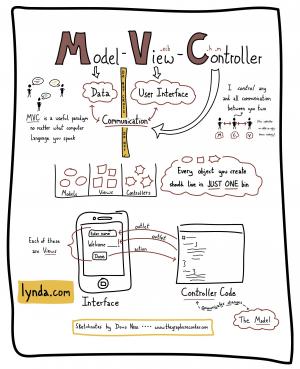 Model-View-Controller
Data
User Interface
Communication
MVC is a useful paradigm
no matter what computer
language you speak
I control any
and all communication
between you two
M C V
Models
Views
Controllers
Every object you create
should live in JUST ONE bin
Each of these
are Views
Enter name
Welcome
Done
outlet
outlet
action
Interface
Controller Code
lynda.com
The Model